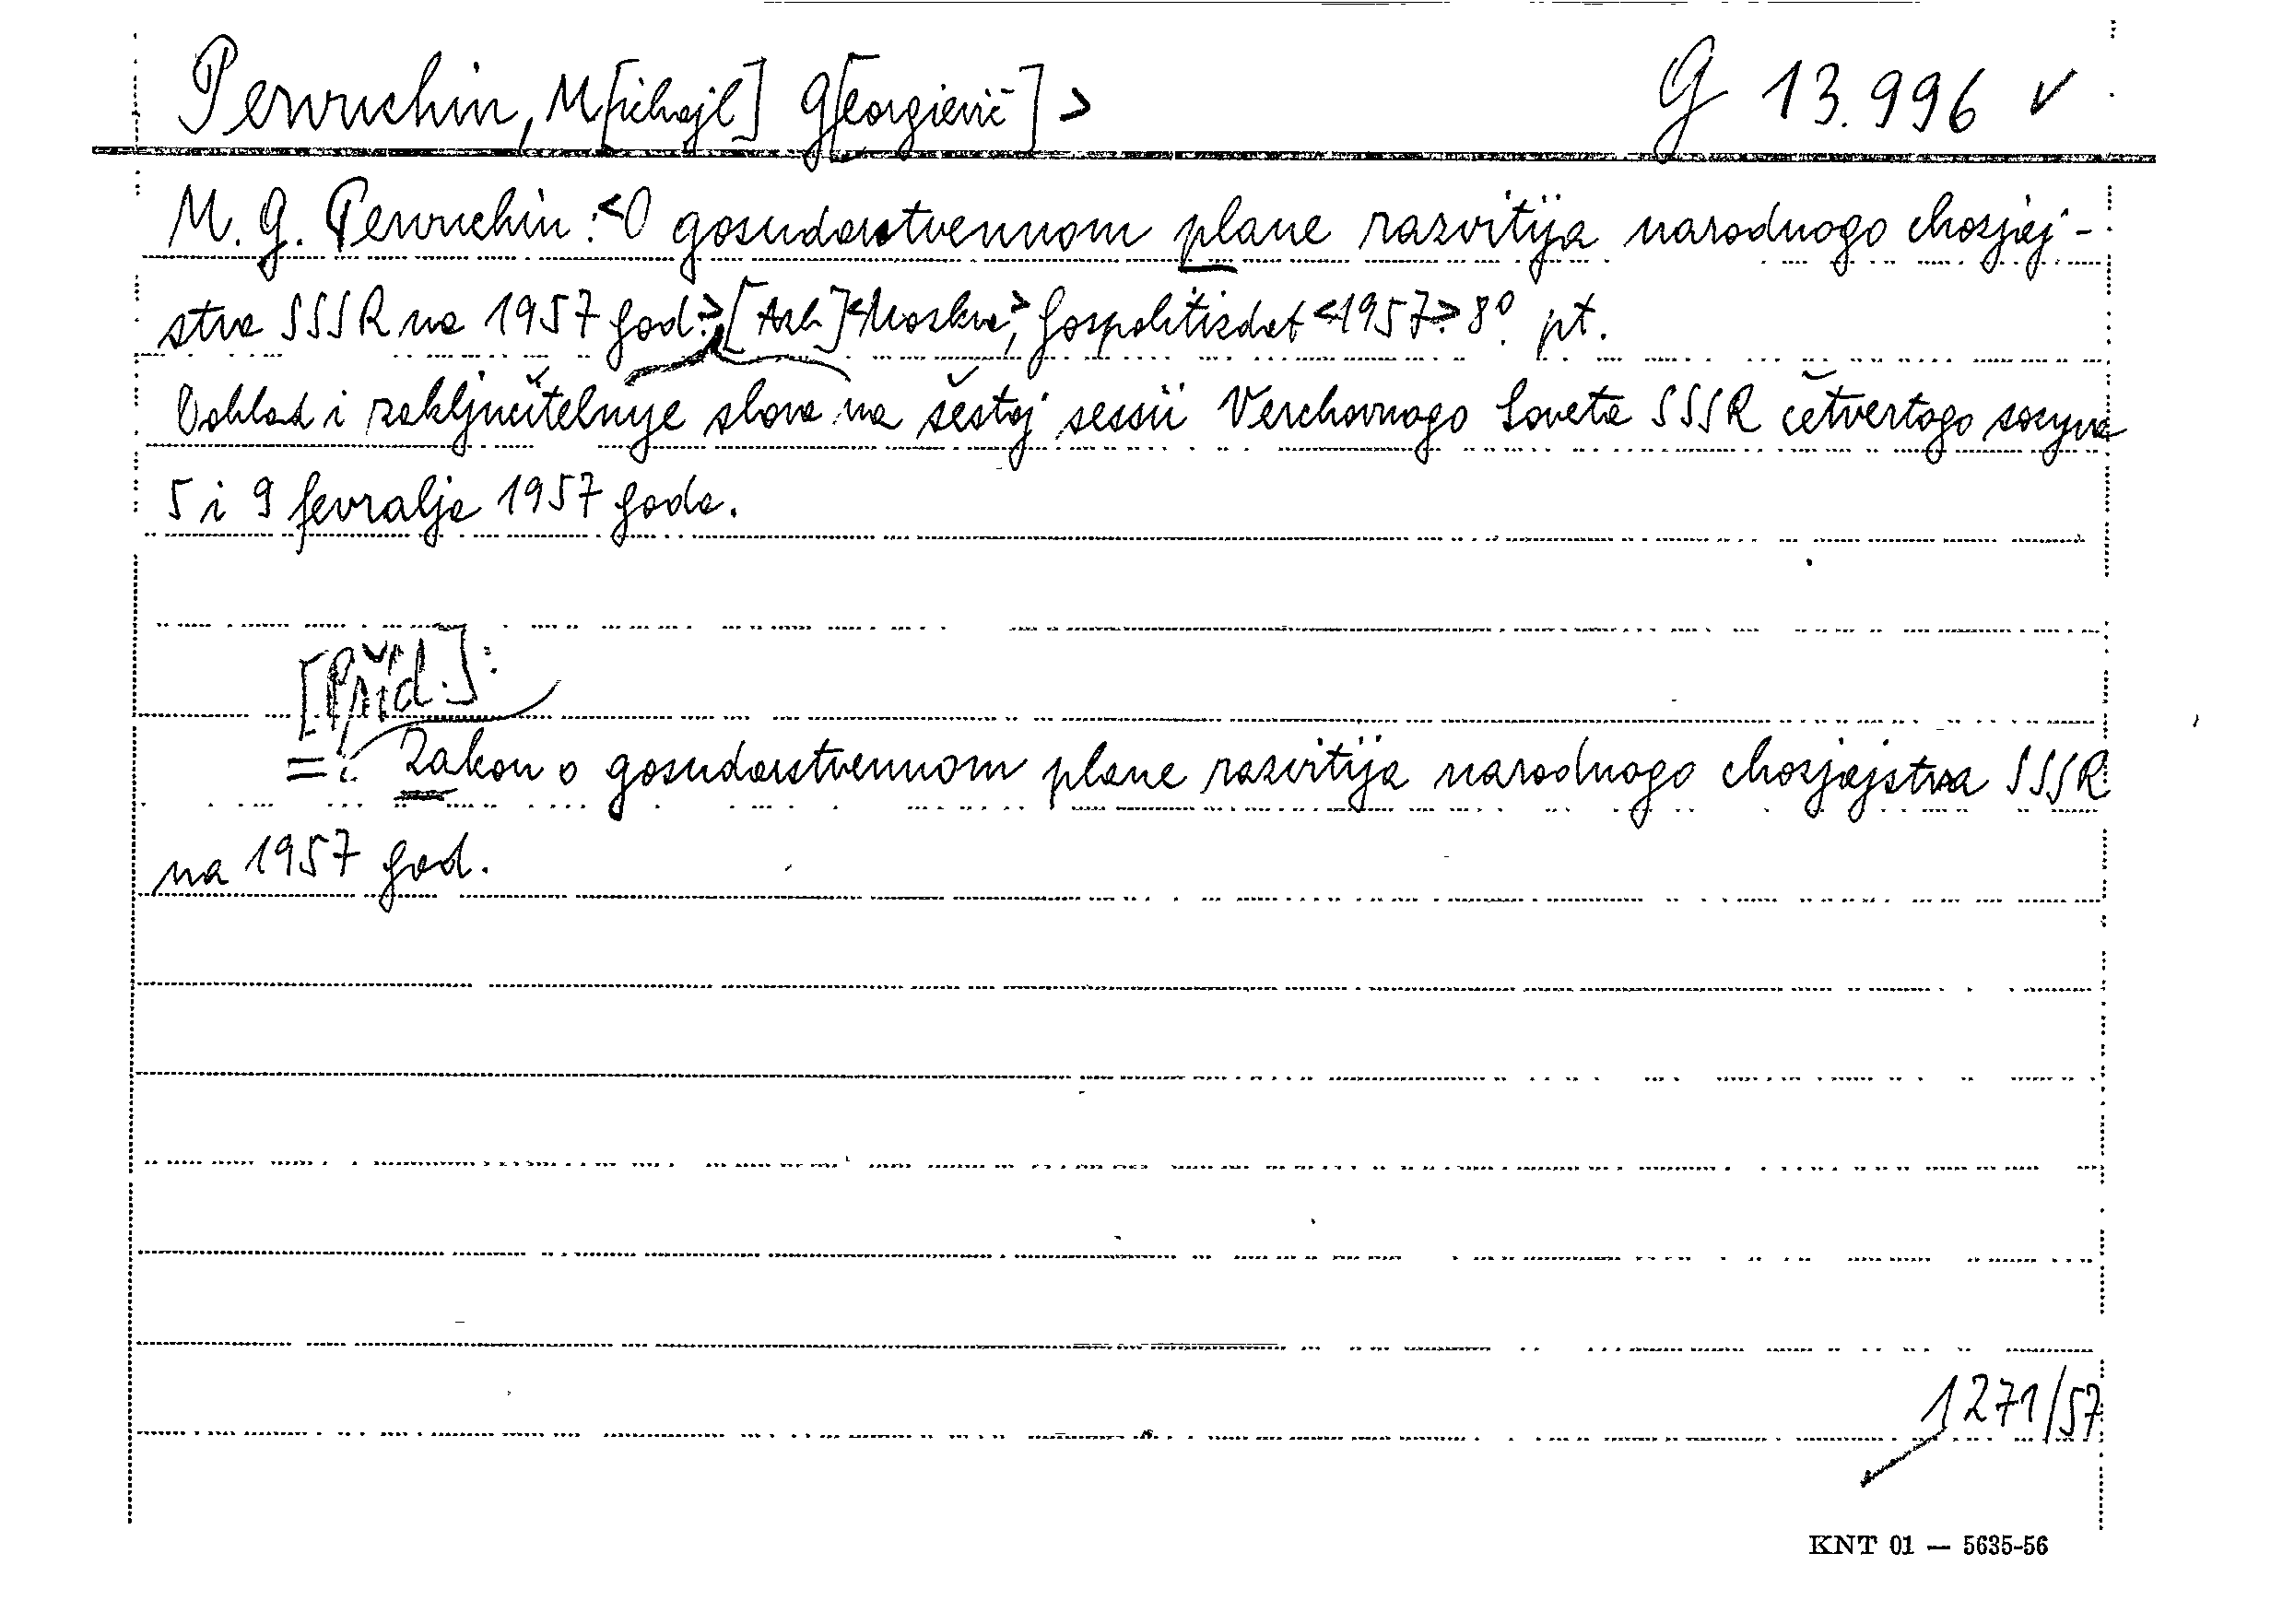 Pervuchin, M[ichajl] G[eorgievič] > G 13.996 ✓
M. G. Pervuchin: <O gosudarstvennom plane razvitija narodnogo chozjaj-
stva SSSR na 1957 god.> <Moskva,> Gospolitizdat <1957.> 8°. pt.
Doklad i zaključitelnye slova na šestoj sessii Verchovnogo Soveta SSSR četvertogo sozyva
5 i 9 fevralja 1957 goda.
[Příd.]:
=: Zakon o gosudarstvennom plane razvitija narodnogo chozjajstva SSSR
na 1957 god.
1271/57
KNT 01 — 5635-56